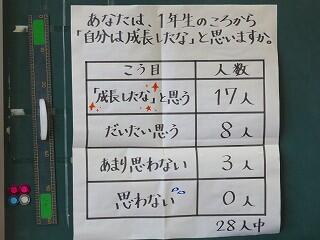 あなたは、1年生のころから
「自分は成長したな」と思いますか。
こう目 人数
「成長したな」と思う 17人
だいたい思う 8人
あまり思わない 3人
思わない 0人
28人中